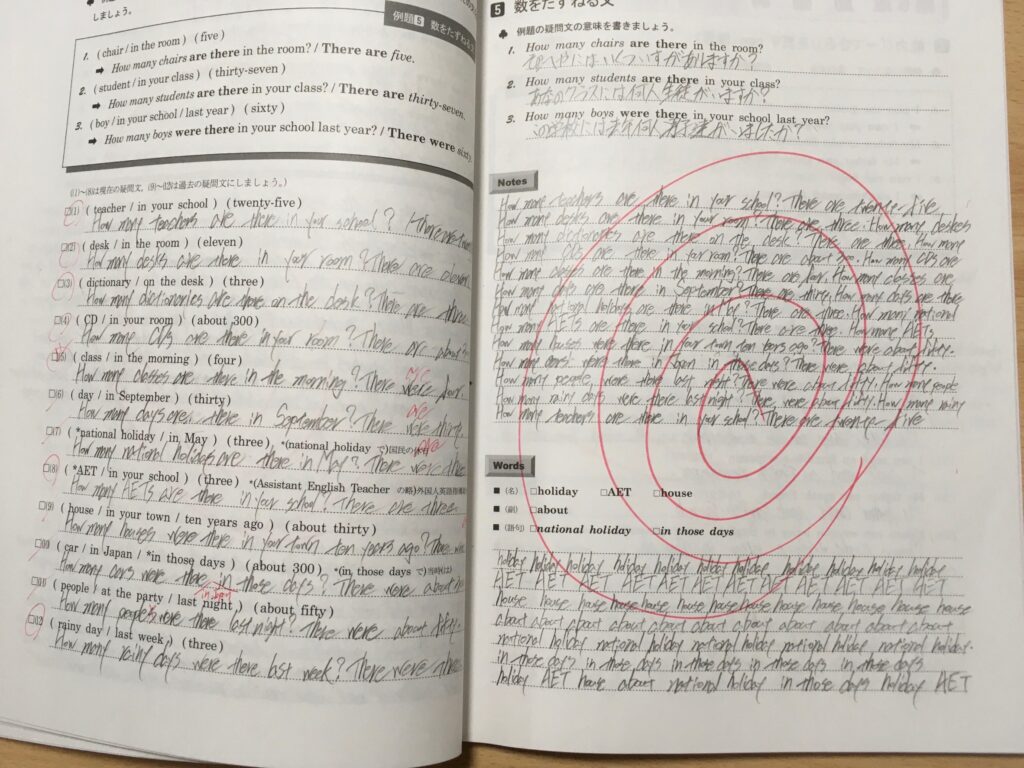 しましょう。
例題 5 数をたずねる文
1. ( chair / in the room ) ( five )
➡ How many chairs are there in the room? / There are five.
2. ( student / in your class ) ( thirty-seven )
➡ How many students are there in your class? / There are thirty-seven.
3. ( boy / in your school / last year ) ( sixty )
➡ How many boys were there in your school last year? / There were sixty.
((1)~(8)は現在の疑問文, (9)~(12)は過去の疑問文にしましょう。)
□(1) ( teacher / in your school ) (twenty-five)
How many teachers are there in your school? /There are
□(2) ( desk / in the room ) (eleven)
How many desks are there in your room? There are eleven.
□(3) ( dictionary / on the desk ) (three)
How many dictionaries are there on the desk? There are three.
□(4) ( CD / in your room ) (about 300)
How many CDs are there in your room? There are about
□(5) ( class / in the morning ) (four)
are
How many classes are there in the morning? There were four.
□(6) ( day / in September ) (thirty)
are
How many days are there in September? There were thirty.
□(7) ( *national holiday / in May ) (three) *(national holiday で)国民の
are
How many national holidays are there in May? There were three
□(8) ( *AET / in your school ) (three) *(Assistant English Teacher の略)外国人英語指導
How many AETs are there in your school? There are three.
□(9) ( house / in your town / ten years ago ) (about thirty)
How many houses were there in your town ten years ago? There
□(10) ( car / in Japan / *in those days ) (about 300) *(in those days で)当時(は)
How many cars were there in those days? There were about
in Japan
□(11) ( people / at the party / last night ) (about fifty)
How many people were there last night? There were about fifty.
□(12) ( rainy day / last week ) (three)
How many rainy days were there last week? There were three
5 数をたずねる文
♣ 例題の疑問文の意味を書きましょう。
1. How many chairs are there in the room?
そのへやにはいくついすがありますか?
2. How many students are there in your class?
あなたのクラスには何人生徒がいますか?
3. How many boys were there in your school last year?
Notes
How many teachers are there in your school? There are twenty-five.
How many desks are there in your room? There are three. How many desks
How many dictionaries are there on the desk? There are three. How many
How many CDs are there in your room? There are about 300. How many CDs are
How many classes are there in the morning? There are four. How many classes are
How many days are there in September? There are thirty. How many days are there
How many national holidays are there in May? There are three. How many national
How many AETs are there in your school? There are three. How many AETs
How many houses were there in your town ten years ago? There were about fifty.
How many cars were there in Japan in those days? There were about fifty.
How many people were there last night? There were about fifty. How many people
How many rainy days were there last night? There were about fifty. How many rainy
How many teachers are there in your school? There are twenty-five
Words
■ (名) □holiday □AET □house
■ (副) □about
■ (語句) □national holiday □in those days
holiday holiday holiday holiday holiday holiday holiday holiday holiday
AET AET AET AET AET AET AET AET AET AET AET
house house house house house house house house house house house house
about about about about about about about about about about about
national holiday national holiday national holiday national holiday national holiday.
in those days in those days in those days in those days in those days
holiday AET house about national holiday in those days holiday AET